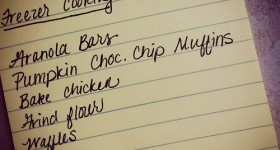 Freezer Cooking
Granola Bars
Pumpkin Choc. Chip Muffins
Bake chicken
Grind flour
Waffles